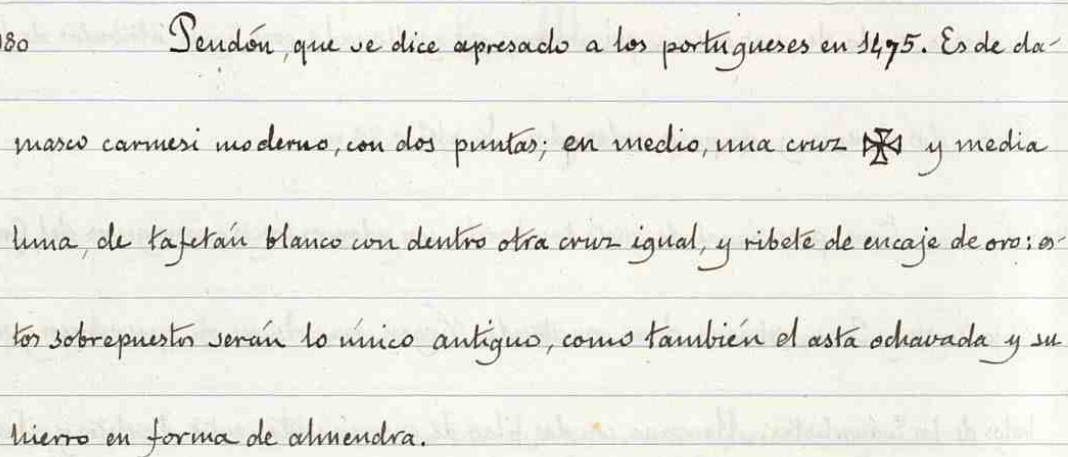 180 Pendón, que se dice apresado a los portugueses en 1475. Es de da-
masco carmesi moderno, con dos puntas; en medio, una cruz ✠ y media
luna, de tafetán blanco con dentro otra cruz igual, y ribete de encaje de oro: es-
tos sobrepuestos serán lo único antiguo, como también el asta ochavada y su
hierro en forma de almendra.